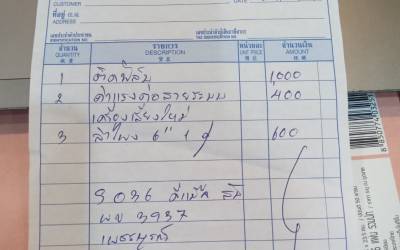 CUSTOMER
ที่อยู่
ADDRESS
เลขประจำตัวผู้เสียภาษีอากร
จำนวน รายการ หน่วยละ จำนวนเงิน
QUANTITY DESCRIPTION UNIT PRICE AMOUNT
1 ติดฟิล์ม 1000
2 ค่าแรงต่อสายระบบ 400
เครื่องเสียงใหม่
3 ลำโพง 6" 1 คู่ 600
9036 ดีแม็ค
ผบ 3937
เพชรบูรณ์